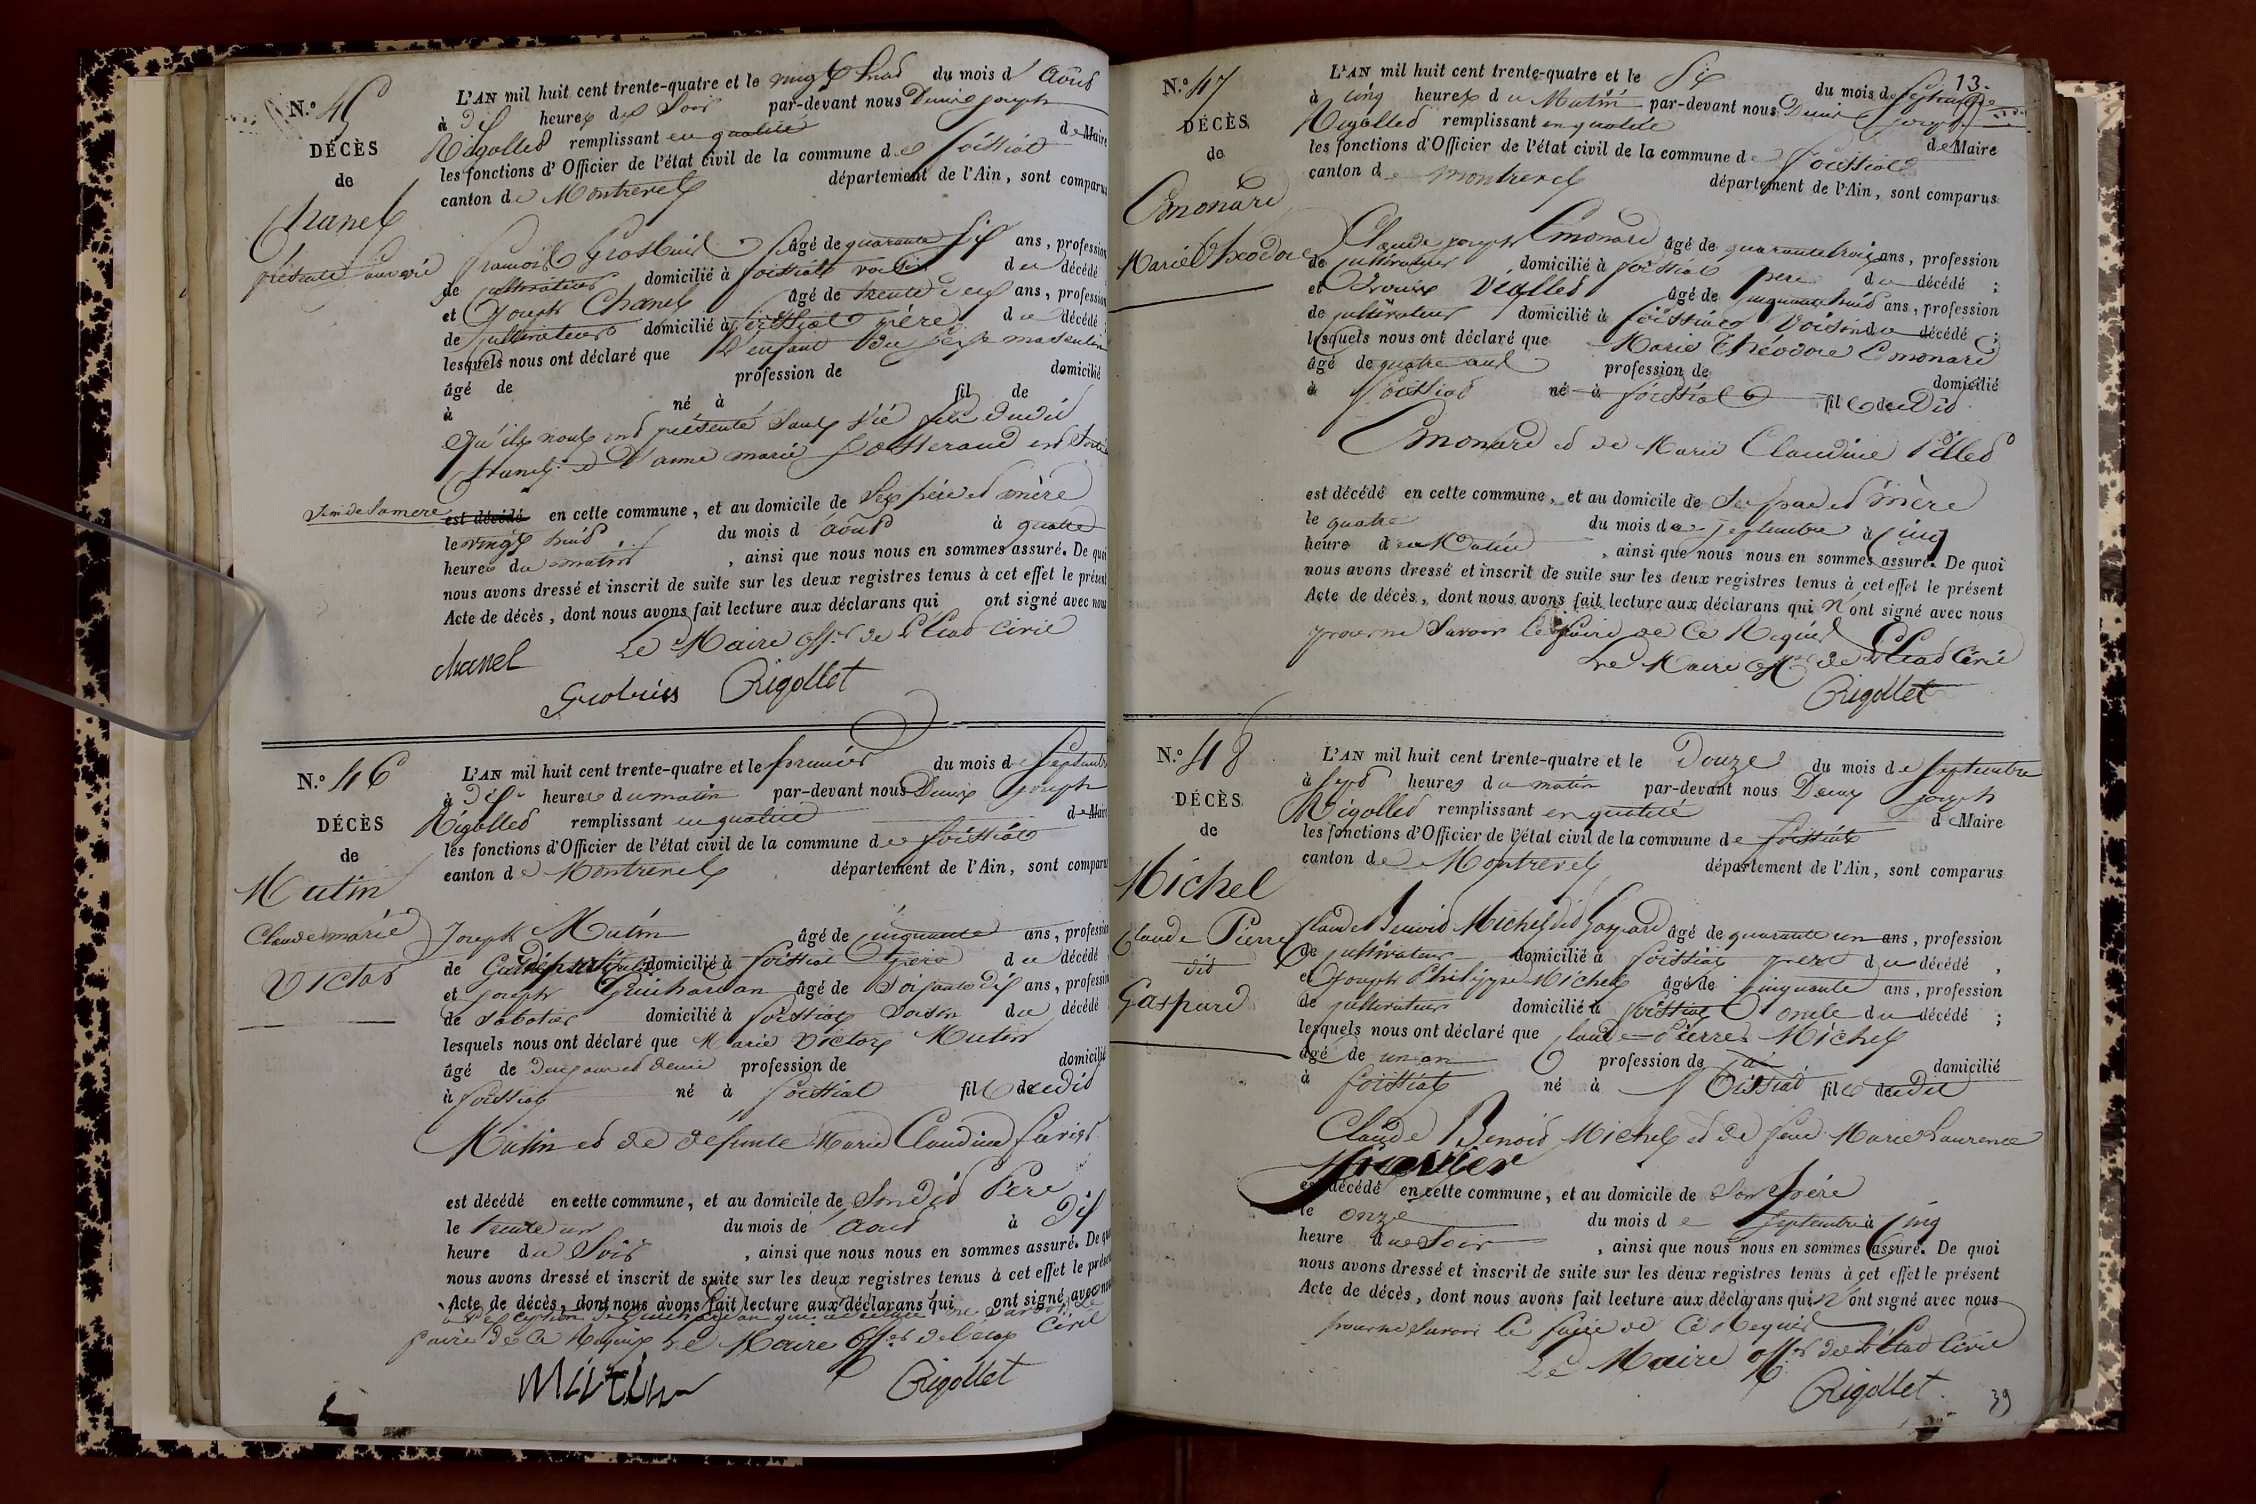 N.º 45
DÉCÈS
de
Chanel
présenté sans vie
L'AN mil huit cent trente-quatre et le vingt huit du mois d'Aout
à dix heures du Soir par-devant nous Denis joseph
Rigollet remplissant en qualité de Maire
les fonctions d'Officier de l'état civil de la commune de foissiat
canton de Montrevel département de l'Ain, sont comparus
françois âgé de quarante six ans, profession
de cultivateur domicilié à foissiat voisin du décédé
et Joseph Chanel âgé de trente ans, profession
de cultivateur domicilié à foissiat père du décédé ;
lesquels nous ont déclaré que l'enfant du sexe masculin
âgé de profession de domicilié
à né à fil de
qu'ils nous ont présenté sans vie fils dudit
Chanel et d'anne marie est sorti
sein de sa mere est décédé en cette commune, et au domicile de ses père et mère
le vingt huit du mois d'aout à quatre
heures du matin , ainsi que nous nous en sommes assuré. De quoi
nous avons dressé et inscrit de suite sur les deux registres tenus à cet effet le présent
Acte de décès, dont nous avons fait lecture aux déclarans qui ont signé avec nous
Le Maire off.er de l'Etat Civil
chanel
Rigollet
N.º 46
DÉCÈS
de
Mutin
Claude marie
Victor
L'AN mil huit cent trente-quatre et le premier du mois de Septembre
à dix heures du matin par-devant nous Denis joseph
Rigollet remplissant en qualité de Maire
les fonctions d'Officier de l'état civil de la commune de foissiat
canton de Montrevel département de l'Ain, sont comparus
Joseph Mutin âgé de cinquante ans, profession
de domicilié à foissiat père du décédé
et joseph Guichardan âgé de Soixante dix ans, profession
de Sabotier domicilié à foissiat voisin du décédé
lesquels nous ont déclaré que Marie Victor Mutin
âgé de jours et demi profession de domicilié
à foissiat né à foissiat fils dudit
Mutin et de defunte Marie Claudine
est décédé en cette commune, et au domicile de Sondit Père
le trente un du mois de Aout à dix
heure du Soir , ainsi que nous nous en sommes assuré. De quoi
nous avons dressé et inscrit de suite sur les deux registres tenus à cet effet le présent
Acte de décès, dont nous avons fait lecture aux déclarans qui ont signé avec nous
à l'exception de Guichardan qui a déclaré ne savoir le
faire de ce Requis Le Maire Off.er de l'état Civil
Mutin
Rigollet
13.
N.º 47
DÉCÈS
de
Emonard
Marie Théodore
L'AN mil huit cent trente-quatre et le Six du mois de Septembre
à cinq heures du Matin par-devant nous Denis joseph
Rigollet remplissant en qualité de Maire
les fonctions d'Officier de l'état civil de la commune de foissiat
canton de montrevel département de l'Ain, sont comparus
Claude joseph Emonard âgé de quarante trois ans, profession
de cultivateur domicilié à foissiat père du décédé ;
et Viallet âgé de cinquante huit ans, profession
de cultivateur domicilié à foissiat Voisin du décédé ;
lesquels nous ont déclaré que Marie Théodore Emonard
âgé de quatre ans profession de domicilié
à foissiat né à foissiat fil dudit
Emonard et de Marie Claudine Pillet
est décédé en cette commune, et au domicile de Ses père et mère
le quatre du mois de Septembre à cinq
heure du Matin , ainsi que nous nous en sommes assuré. De quoi
nous avons dressé et inscrit de suite sur les deux registres tenus à cet effet le présent
Acte de décès, dont nous avons fait lecture aux déclarans qui n'ont signé avec nous
pour ne Savoir le faire de ce Requis
Le Maire Off.er de l'Etat Civil
Rigollet
N.º 48
DÉCÈS
de
Michel
Claude Pierre
dit
Gaspard
L'AN mil huit cent trente-quatre et le Douze du mois de Septembre
à Sept heures du matin par-devant nous Denis joseph
Rigollet remplissant en qualité de Maire
les fonctions d'Officier de l'état civil de la commune de foissiat
canton de Montrevel département de l'Ain, sont comparus
Claude Benoit Michel dit Gaspard âgé de quarante un ans, profession
de cultivateur domicilié à foissiat père du décédé ,
et Joseph Philippe Michel âgé de cinquante ans, profession
de cultivateur domicilié à foissiat oncle du décédé ;
lesquels nous ont déclaré que Claude Pierre Michel
âgé de un an profession de domicilié
à foissiat né à foissiat fils dudit
Claude Benoit Michel et de feue Marie Laurence
est décédé en cette commune, et au domicile de Son père
le onze du mois de Septembre à cinq
heure du Soir , ainsi que nous nous en sommes assuré. De quoi
nous avons dressé et inscrit de suite sur les deux registres tenus à cet effet le présent
Acte de décès, dont nous avons fait lecture aux déclarans qui n'ont signé avec nous
pour ne Savoir le faire de ce Requis
Le Maire off.er de l'Etat Civil
Rigollet
39